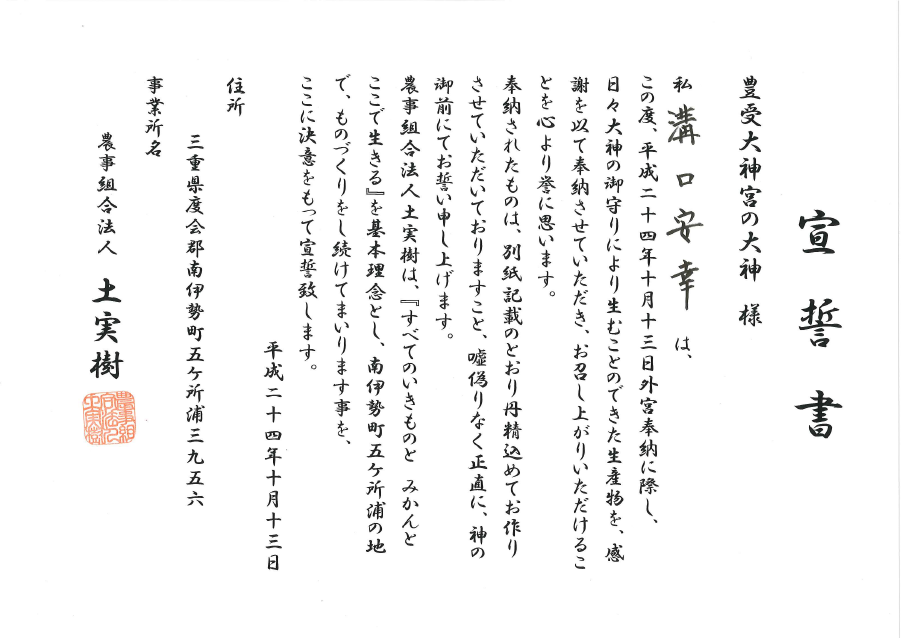 宣誓書
豊受大神宮の大神 様
私 溝口安幸 は、
この度、平成二十四年十月十三日外宮奉納に際し、
日々大神の御守りにより生むことのできた生産物を、感
謝を以て奉納させていただき、お召し上がりいただけるこ
とを心より誉に思います。
奉納されたものは、別紙記載のとおり丹精込めてお作り
させていただいておりますこと、嘘偽りなく正直に、神の
御前にてお誓い申し上げます。
農事組合法人土実樹は、『すべてのいきものと みかんと
ここで生きる』を基本理念とし、南伊勢町五ケ所浦の地
で、ものづくりをし続けてまいります事を、
ここに決意をもって宣誓致します。
平成二十四年十月十三日
住所
三重県度会郡南伊勢町五ケ所浦三九五六
事業所名
農事組合法人 土実樹
農事組
合法人
土実樹